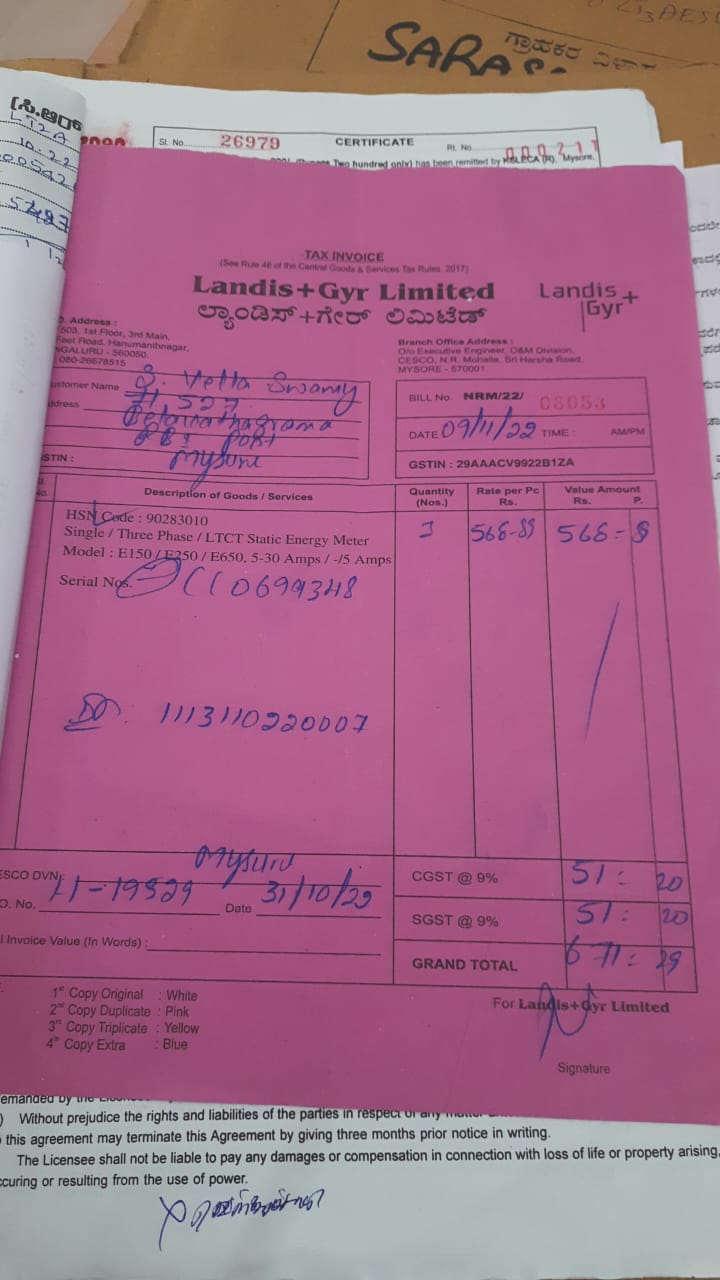 SARAS
ಗ್ರಾಹಕರ ವಿಳಾಸ
[ಸಿ.ಆರ್
LT2A
Sl. No. 26979 CERTIFICATE Rt. No. 000211
Two hundred only) has been remitted by KSLECA (R), Mysore.
TAX INVOICE
(See Rule 48 of the Central Goods & Services Tax Rules, 2017)
Landis+Gyr Limited
ಲ್ಯಾಂಡಿಸ್+ಗೇರ್ ಲಿಮಿಟೆಡ್
Landis+
Gyr
Address :
503, 1st Floor, 3rd Main,
Feet Road, Hanumanthnagar,
NGALURU - 560050.
080-26678515
Branch Office Address :
O/o Executive Engineer, O&M Division,
CESCO, N.R. Mohalla, Sri Harsha Road,
MYSORE - 570001
ustomer Name Vella Swamy
ddress # 527
Post
Mysore
STIN :
BILL No. NRM/22/ 08053
DATE 09/11/22 TIME : AM/PM
GSTIN : 29AAACV9922B1ZA
No. Description of Goods / Services Quantity (Nos.) Rate per Pc Rs. Value Amount Rs. P.
HSN Code : 90283010
Single / Three Phase / LTCT Static Energy Meter
Model : E150 / E250 / E650, 5-30 Amps / -/5 Amps
1 568-89 568=
Serial Nos. CC0699348
1113110220007
Mysuru
ESCO DVN.
O. No. 11-19529 Date 31/10/22
l Invoice Value (In Words) :
CGST @ 9% 51: 20
SGST @ 9% 51: 20
GRAND TOTAL 671: 29
1st Copy Original : White
2nd Copy Duplicate : Pink
3rd Copy Triplicate : Yellow
4th Copy Extra : Blue
For Landis+Gyr Limited
Signature
emanded by the
) Without prejudice the rights and liabilities of the parties in respect of any
this agreement may terminate this Agreement by giving three months prior notice in writing.
The Licensee shall not be liable to pay any damages or compensation in connection with loss of life or property arising,
ccuring or resulting from the use of power.